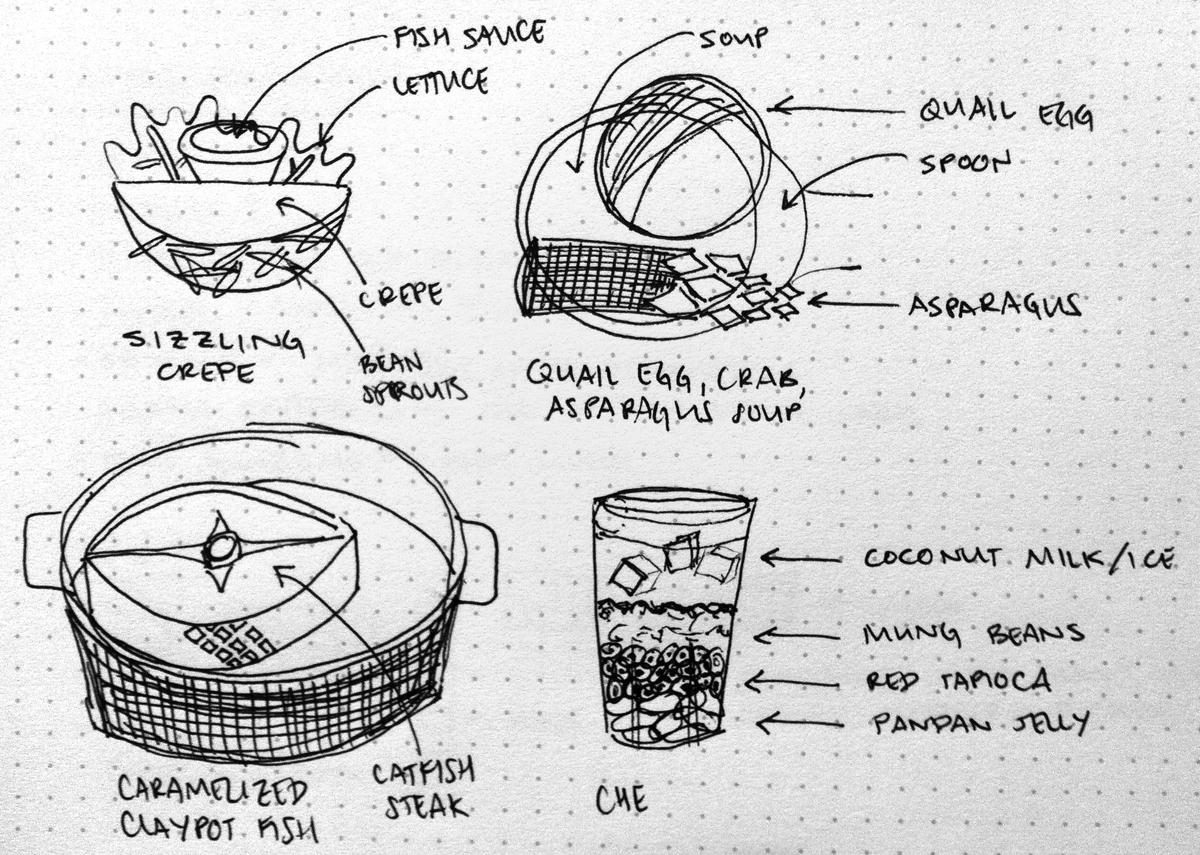 FISH SAUCE
LETTUCE
CREPE
BEAN
SPROUTS
SIZZLING
CREPE
SOUP
QUAIL EGG
SPOON
ASPARAGUS
QUAIL EGG, CRAB,
ASPARAGUS SOUP
CATFISH
STEAK
CARAMELIZED
CLAYPOT FISH
COCONUT MILK/ICE
MUNG BEANS
RED TAPIOCA
PANDAN JELLY
CHE